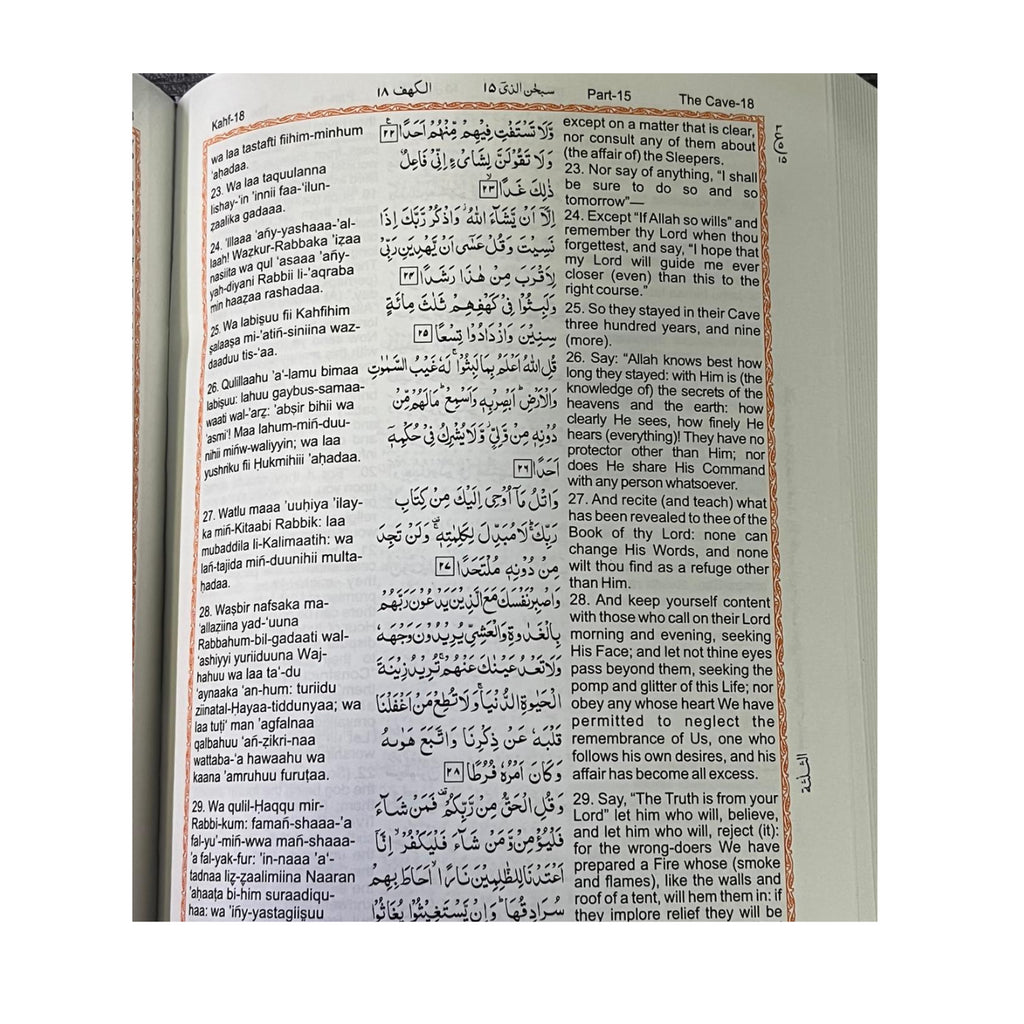 Kahf-18
الكهف ۱۸
سبحٰن الذیٓ ۱۵
Part-15
The Cave-18
wa laa tastafti fiihim-minhum
'aḥadaa.
23. Wa laa taquulanna
lishay-'in 'innii faa-'ilun-
zaalika gadaaa.
24. 'Illaaa 'añy-yashaaa-'al-
laah! Wazkur-Rabbaka 'iẕaa
nasiita wa qul 'asaaa 'añy-
yah-diyani Rabbii li-'aqraba
min haaẕaa rashadaa.
25. Wa labiṣuu fii Kahfihim
ṣalaaṣa mi-'atiñ-siniina waz-
daaduu tis-'aa.
26. Qulillaahu 'a'-lamu bimaa
labiṣuu: lahuu gaybus-samaa-
waati wal-'arẓ: 'abṣir bihii wa
'asmi'! Maa lahum-miñ-duu-
nihii miñw-waliyyin; wa laa
yushriku fii Ḥukmihiii 'aḥadaa.
27. Watlu maaa 'uuḥiya 'ilay-
ka miñ-Kitaabi Rabbik: laa
mubaddila li-Kalimaatih: wa
lañ-tajida miñ-duunihii multa-
ḥadaa.
28. Waṣbir nafsaka ma-
'allaẕiina yad-'uuna
Rabbahum-bil-gadaati wal-
'ashiyyi yuriiduuna Waj-
hahuu wa laa ta'-du
'aynaaka 'an-hum: turiidu
ziinatal-Ḥayaa-tiddunyaa; wa
laa tuṭi' man 'agfalnaa
qalbahuu 'añ-ẕikri-naa
wattaba-'a hawaahu wa
kaana 'amruhuu furuṭaa.
29. Wa qulil-Ḥaqqu mir-
Rabbi-kum: famañ-shaaa-'a
fal-yu'-miñ-wwa mañ-shaaa-
'a fal-yak-fur: 'in-naaa 'a'-
tadnaa liẓ-ẓaalimiina Naaran
'aḥaaṭa bi-him suraadiqu-
haa: wa 'iñy-yastagiiṣuu
وَّلَا تَسْتَفْتِ فِيْهِمْ مِّنْهُمْ اَحَدًا ۲۲
وَلَا تَقُوْلَنَّ لِشَایْءٍ اِنِّیْ فَاعِلٌ
ذٰلِكَ غَدًا ۲۳
اِلَّاۤ اَنْ يَّشَآءَ اللّٰهُ وَاذْكُرْ رَّبَّكَ اِذَا
نَسِيْتَ وَقُلْ عَسٰۤی اَنْ يَّهْدِيَنِ رَبِّیْ
لِاَقْرَبَ مِنْ هٰذَا رَشَدًا ۲۴
وَلَبِثُوْا فِیْ كَهْفِهِمْ ثَلٰثَ مِائَةٍ
سِنِيْنَ وَازْدَادُوْا تِسْعًا ۲۵
قُلِ اللّٰهُ اَعْلَمُ بِمَا لَبِثُوْا لَهٗ غَيْبُ السَّمٰوٰتِ
وَالْاَرْضِ اَبْصِرْ بِهٖ وَاَسْمِعْ مَا لَهُمْ مِّنْ
دُوْنِهٖ مِنْ وَّلِیٍّ وَّلَا يُشْرِكُ فِیْ حُكْمِهٖۤ
اَحَدًا ۲۶
وَاتْلُ مَاۤ اُوْحِیَ اِلَيْكَ مِنْ كِتَابِ
رَبِّكَ لَا مُبَدِّلَ لِكَلِمٰتِهٖ وَلَنْ تَجِدَ
مِنْ دُوْنِهٖ مُلْتَحَدًا ۲۷
وَاصْبِرْ نَفْسَكَ مَعَ الَّذِيْنَ يَدْعُوْنَ رَبَّهُمْ
بِالْغَدٰوةِ وَالْعَشِیِّ يُرِيْدُوْنَ وَجْهَهٗ
وَلَا تَعْدُ عَيْنٰكَ عَنْهُمْ تُرِيْدُ زِيْنَةَ
الْحَيٰوةِ الدُّنْيَا وَلَا تُطِعْ مَنْ اَغْفَلْنَا
قَلْبَهٗ عَنْ ذِكْرِنَا وَاتَّبَعَ هَوٰىهُ
وَكَانَ اَمْرُهٗ فُرُطًا ۲۸
وَقُلِ الْحَقُّ مِنْ رَّبِّكُمْ فَمَنْ شَآءَ
فَلْيُؤْمِنْ وَّمَنْ شَآءَ فَلْيَكْفُرْ اِنَّاۤ
اَعْتَدْنَا لِلظّٰلِمِيْنَ نَارًا اَحَاطَ بِهِمْ
سُرَادِقُهَا وَاِنْ يَّسْتَغِيْثُوْا يُغَاثُوْا
except on a matter that is clear,
nor consult any of them about
(the affair of) the Sleepers.
23. Nor say of anything, “I shall
be sure to do so and so
tomorrow”—
24. Except “If Allah so wills” and
remember thy Lord when thou
forgettest, and say, “I hope that
my Lord will guide me ever
closer (even) than this to the
right course.”
25. So they stayed in their Cave
three hundred years, and nine
(more).
26. Say: “Allah knows best how
long they stayed: with Him is (the
knowledge of) the secrets of the
heavens and the earth: how
clearly He sees, how finely He
hears (everything)! They have no
protector other than Him; nor
does He share His Command
with any person whatsoever.
27. And recite (and teach) what
has been revealed to thee of the
Book of thy Lord: none can
change His Words, and none
wilt thou find as a refuge other
than Him.
28. And keep yourself content
with those who call on their Lord
morning and evening, seeking
His Face; and let not thine eyes
pass beyond them, seeking the
pomp and glitter of this Life; nor
obey any whose heart We have
permitted to neglect the
remembrance of Us, one who
follows his own desires, and his
affair has become all excess.
29. Say, “The Truth is from your
Lord” let him who will, believe,
and let him who will, reject (it):
for the wrong-doers We have
prepared a Fire whose (smoke
and flames), like the walls and
roof of a tent, will hem them in: if
they implore relief they will be
الثلثة